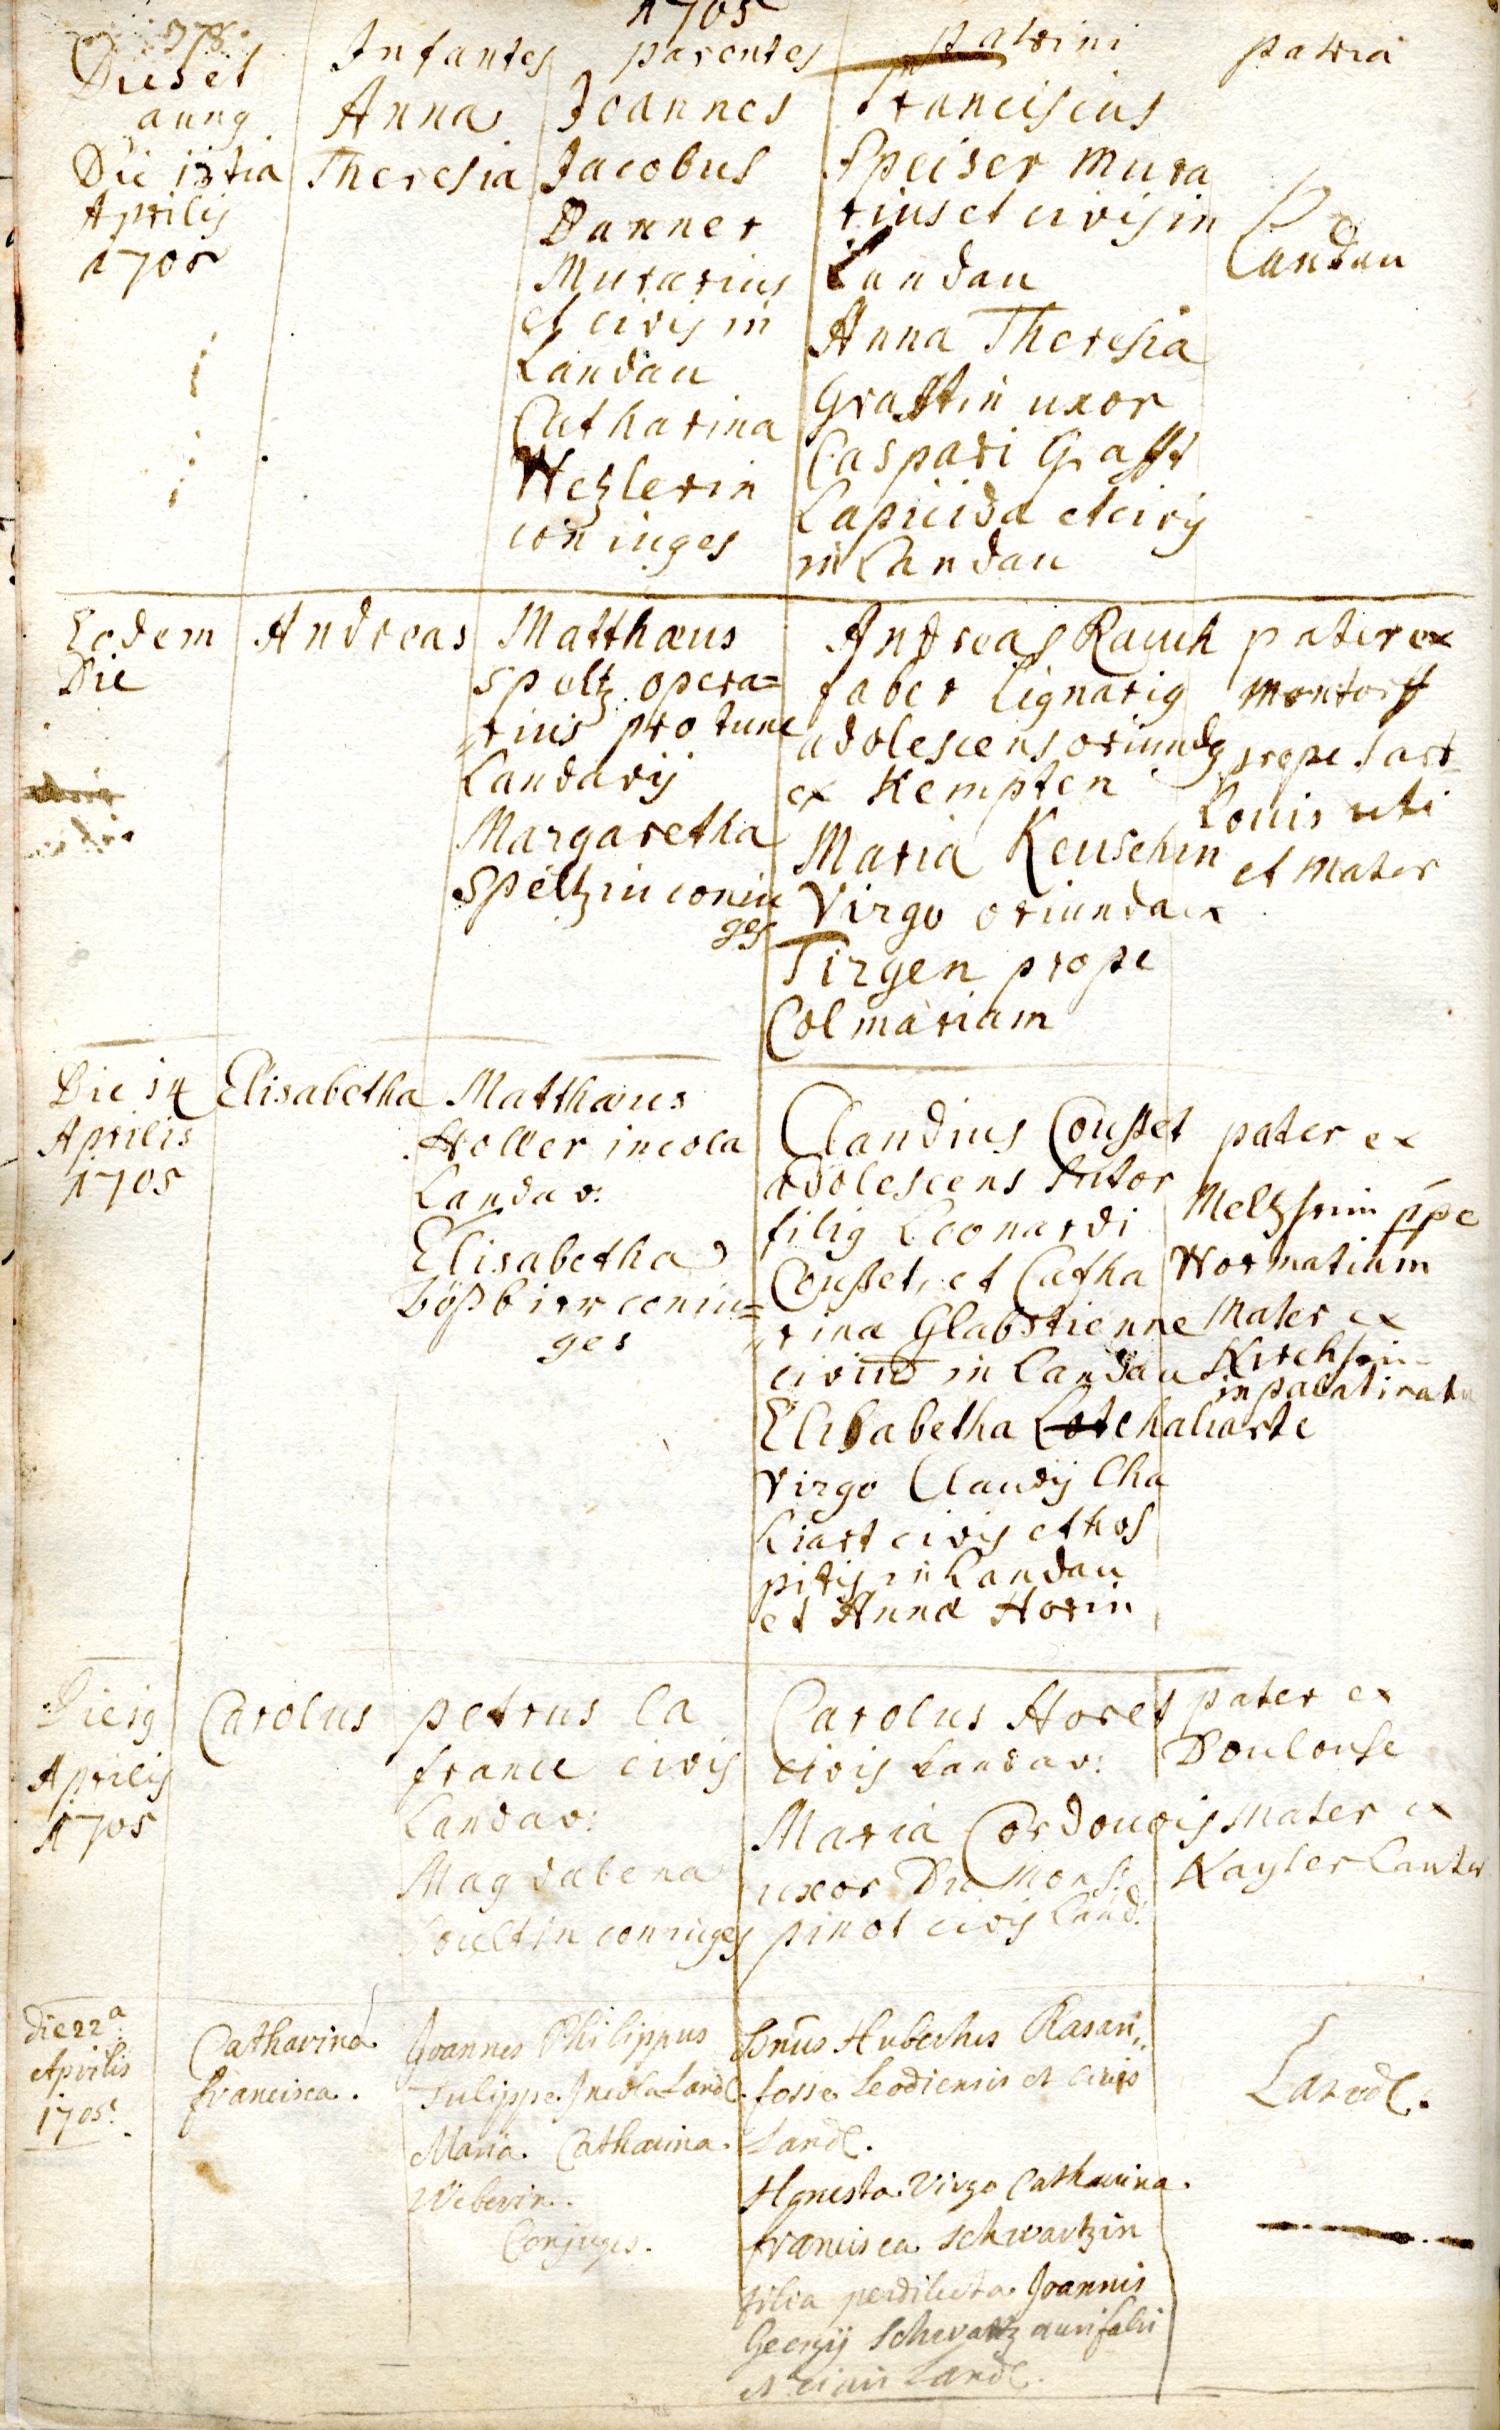 1705
378
Dies et
annq
Infantes
parentes
patrini
patria
Die 13tia
Aprilis
1705
Anna
Theresia
Joannes
Jacobus
Danner
Murarius
et civis in
Landau
Catharina
Wezlerin
coniuges
Franciscus
Speiser mura
rius et civis in
Landau
Anna Theresia
Graftin uxor
Caspari Grafft
Lapicida et civis
in Landau
Landau
Eodem
Die
Andreas
Matthæus
Speltz opera=
rius pro tunc
Landavij
Margaretha
Speltzin coniu
ges
Andreas Rauch
faber lignariq
adolescens oriundq
ex Kempten
Maria Keuschin
Virgo oriunda ex
Tirgen prope
Colmariam
pater ex
Montorff
prope
Louis uti
et mater
Die 14
Aprilis
1705
Elisabetha
Matthæus
Holler incola
Landav:
Elisabetha
Bößbier coniu=
ges
Claudius Coußet
adolescens sutor
filiq Leonardi
Coußet, et Catha
rina Glabstienne
civiu in Landau
Elisabetha Chaliarte
Virgo Claudij Cha
liart civis et hos
pitis in Landau
et Anna Horin
pater ex
Meltzheim ppe
Wormatiam
Mater ex
Kirchhei
in palatinatu
Die 19
Aprilis
1705
Carolus
petrus la
france civis
Landav:
Magdalena
coniuges
Carolus Horet
civis Landav:
Maria Cordouois
uxor Du Mons:
pinot civis Land:
pater ex
Doulouse
Mater ex
Kayser Lauter
die 22a
Aprilis
1705.
Catharina
francisca.
Joannes Philippus
Tulippe. Incola Land.
Maria. Catharina.
Weberin.
Conjuges.
Dnus Hubertus Rasan,,
fosse Leodiensis et civis
Land.
Honesta. Virgo Catharina.
francisca Schwartzin
filia perdilecta. Joannis
Georgij Schwartz aurifabri
et civis Land.
Land.